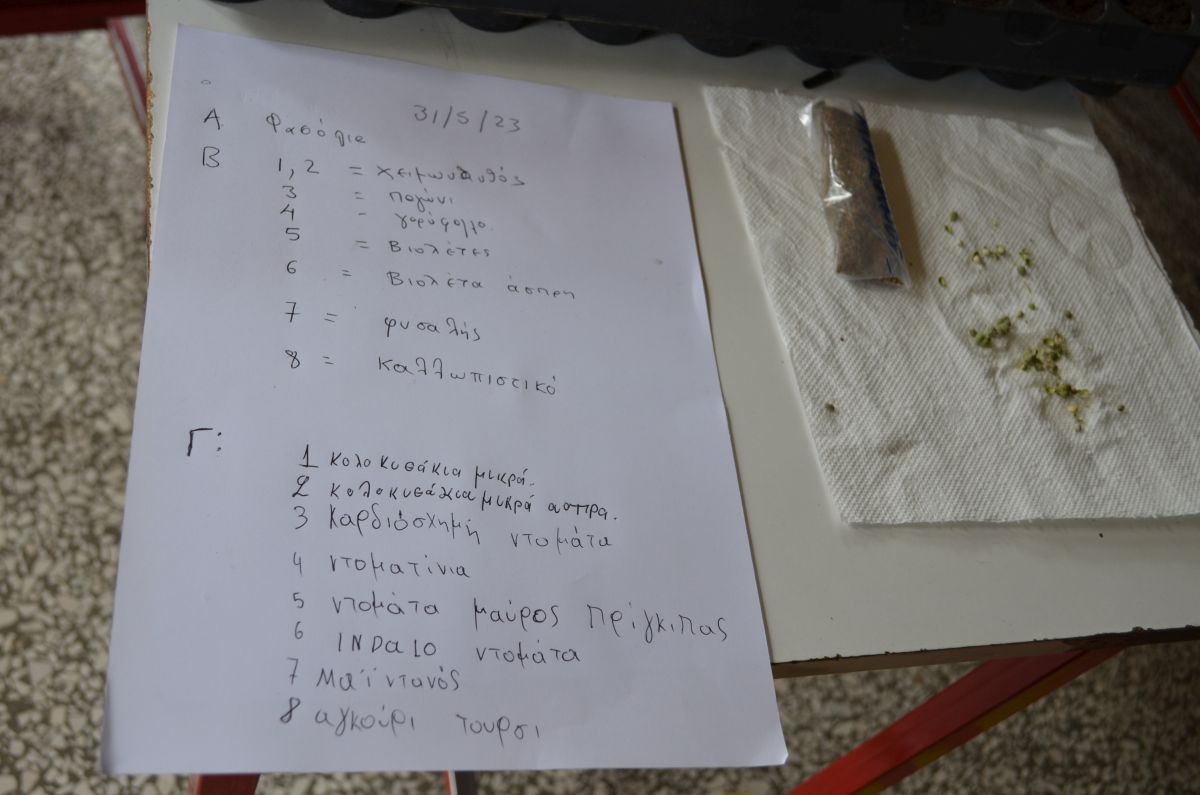 31/5/23
Α Φασόλια
Β 1, 2 = χειμωνανθός
3 = πογώνι
4 - γαρύφαλλο.
5 = Βιολέτες
6 = Βιολέτα άσπρη
7 = φυσαλής
8 = καλλωπιστικό
Γ:
1 κολοκυθάκια μικρά.
2 κολοκυθάκια μικρά ασπρα.
3 Καρδιόσχημή ντομάτα
4 ντοματίνια
5 ντομάτα μαύρος πρίγκιπας
6 INDALO ντομάτα
7 Μαϊντανός
8 αγκούρι τουρσι